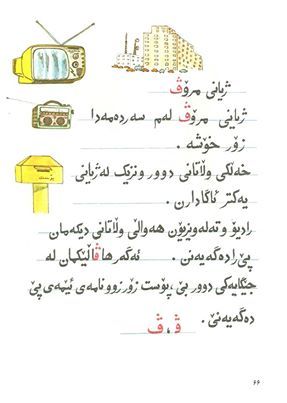 ژیانی مرۆڤ
ژیانی مرۆڤ لەم سەردەمەدا
زۆر خۆشە .
خەڵکی وڵاتانی دوور ونزیک لەژیانی
یەکتر ئاگادارن .
رادیۆ و تەلەوزیۆن هەواڵی وڵاتانی دیکەمان
پێ رادەگەیەنن . ئەگەر هاوڤاڵێکمان لە
جێگایەکی دوور بێ ، پۆست زۆر زوو نامەی ئێمەی پێ
دەگەیەنێ .
ڤ ، ڤ
٦٦